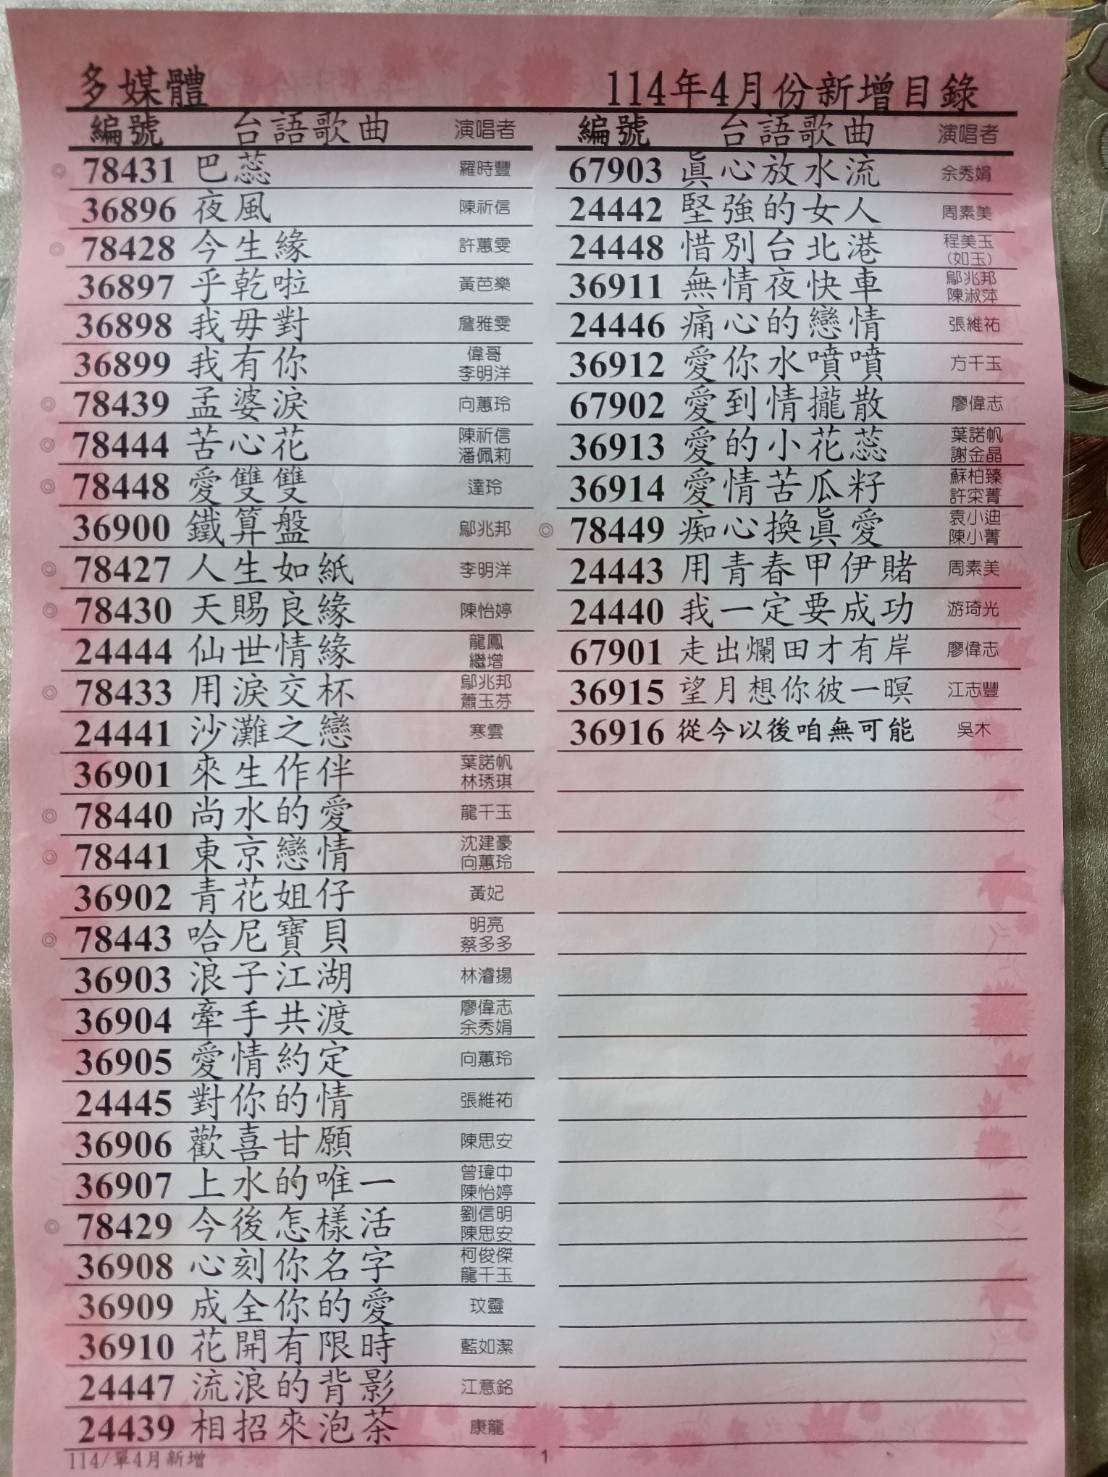 多媒體 114年4月份新增目錄
編號 台語歌曲 演唱者
◎ 78431 巴蕊 羅時豐
36896 夜風 陳祈信
◎ 78428 今生緣 許蕙雯
36897 乎乾啦 黃芭樂
36898 我毋對 詹雅雯
36899 我有你 偉哥 李明洋
◎ 78439 孟婆淚 向蕙玲
◎ 78444 苦心花 陳祈信 潘佩莉
◎ 78448 愛雙雙 達玲
36900 鐵算盤 鄔兆邦
◎ 78427 人生如紙 李明洋
◎ 78430 天賜良緣 陳怡婷
24444 仙世情緣 龍鳳 繼增
◎ 78433 用淚交杯 鄔兆邦 蕭玉芬
24441 沙灘之戀 寒雲
36901 來生作伴 葉諾帆 林琇琪
◎ 78440 尚水的愛 龍千玉
◎ 78441 東京戀情 沈建豪 向蕙玲
36902 青花姐仔 黃妃
◎ 78443 哈尼寶貝 明亮 蔡多多
36903 浪子江湖 林濬揚
36904 牽手共渡 廖偉志 余秀娟
36905 愛情約定 向蕙玲
24445 對你的情 張維祐
36906 歡喜甘願 陳思安
36907 上水的唯一 曾瑋中 陳怡婷
◎ 78429 今後怎樣活 劉信明 陳思安
36908 心刻你名字 柯俊傑 龍千玉
36909 成全你的愛 玟靈
36910 花開有限時 藍如潔
24447 流浪的背影 江意銘
24439 相招來泡茶 康龍
編號 台語歌曲 演唱者
67903 真心放水流 余秀娟
24442 堅強的女人 周素美
24448 惜別台北港 程美玉 (如玉)
36911 無情夜快車 鄔兆邦 陳淑萍
24446 痛心的戀情 張維祐
36912 愛你水噴噴 方千玉
67902 愛到情攏散 廖偉志
36913 愛的小花蕊 葉諾帆 謝金晶
36914 愛情苦瓜籽 蘇柏臻 許寀菁
◎ 78449 痴心換真愛 袁小迪 陳小菁
24443 用青春甲伊賭 周素美
24440 我一定要成功 游琦光
67901 走出爛田才有岸 廖偉志
36915 望月想你彼一暝 江志豐
36916 從今以後咱無可能 吳木
114/單4月新增 1